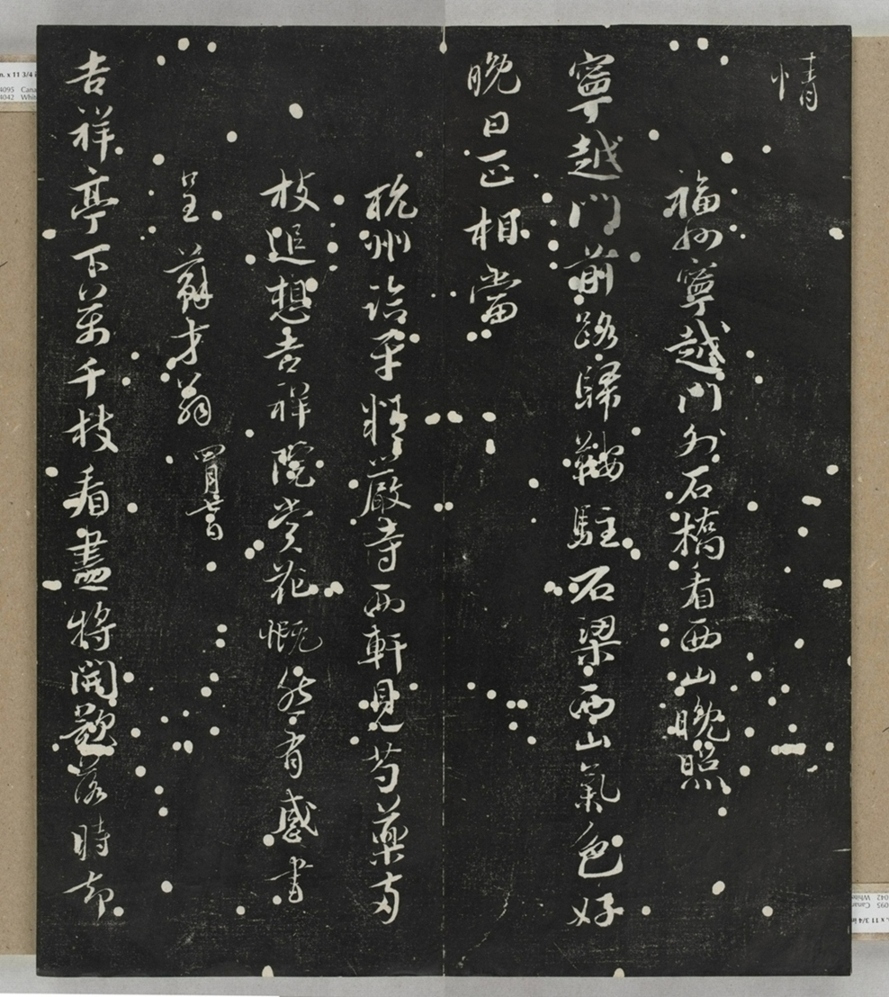 情
福州寧越門外石橋看西山晚照
寧越門前路歸鞍駐石梁西山氣色好
晚日正相當
杭州臨平精嚴寺西軒見芍藥兩
枝追想吉祥院賞花慨然有感書
呈 蘇才翁 四月七日
吉祥亭下萬千枝看盡將開欲落時却